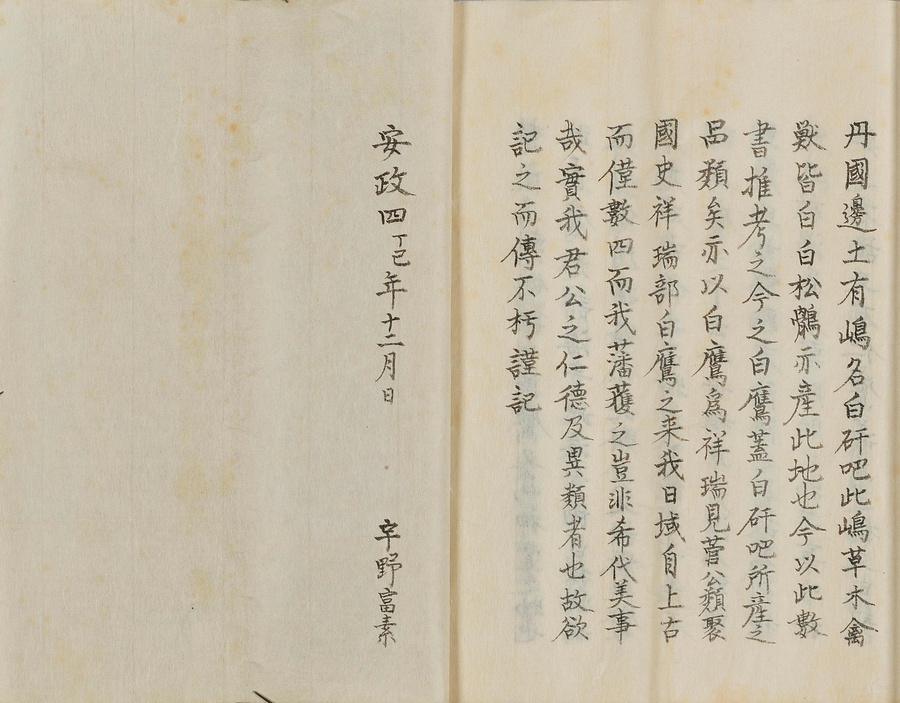 丹國邊土有嶋名白矸吧此嶋草木禽
獣皆白白松鶻亦産此地也今以此數
書推考之今之白鷹蓋白矸吧所産之
品類矣亦以白鷹爲祥瑞見菅公類聚
國史祥瑞部白鷹之来我日域自上古
而僅數四而我藩獲之豈非希代美事
哉實我君公之仁德及異類者也故欲
記之而傳不朽謹記
安政四丁巳年十二月日
宇野富素